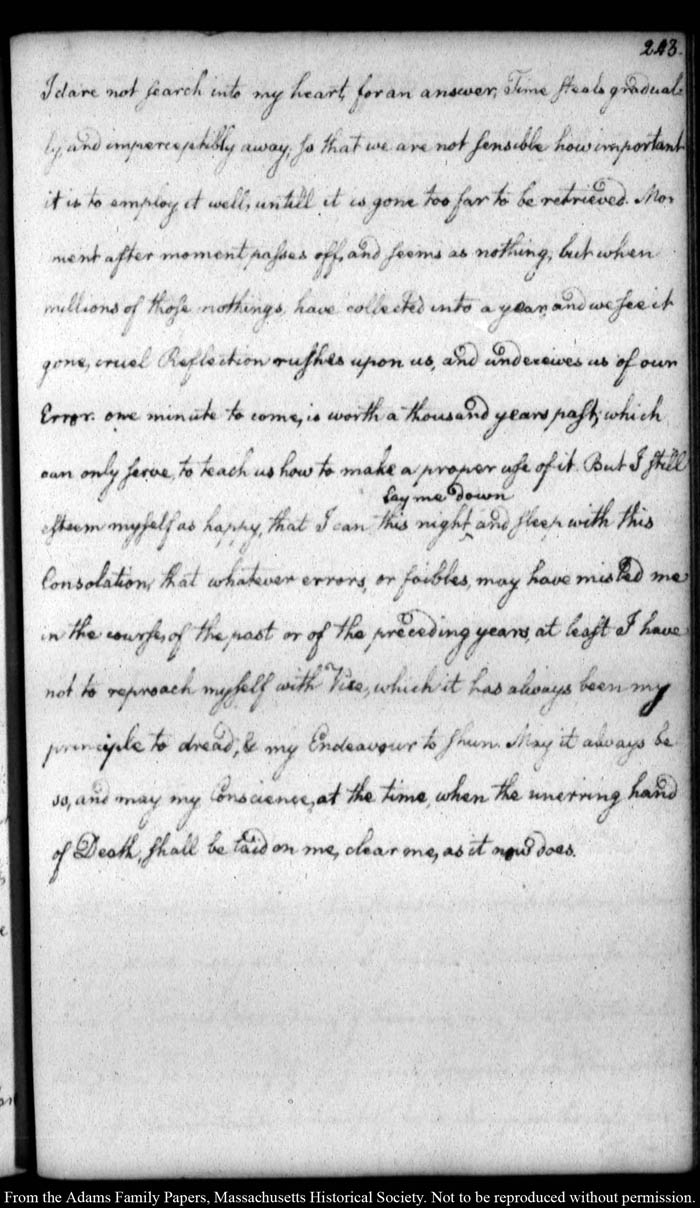 243.
I dare not search into my heart, for an answer; Time steals gradual-
ly, and imperceptibly away, so that we are not sensible how important
it is to employ it well, untill it is gone too far to be retrieved. Mo-
ment after moment passes off, and seems as nothing; but when
millions of those nothings, have collected into a year, and we see it
gone, cruel Reflection rushes upon us, and undeceives us of our
Error. one minute to come, is worth a thousand years past, which
can only serve, to teach us how to make a proper use of it. But I still
lay me down
esteem myself as happy, that I can this night ‸ and sleep with this
Consolation, that whatever errors, or foibles, may have misled me
in the course, of the past or of the preceding years, at least I have
not to reproach myself with Vice, which it has always been my
principle to dread, & my Endeavour to shun. May it always be
so, and may my Conscience, at the time, when the unerring hand
of Death, shall be laid on me, clear me, as it now does.
From the Adams Family Papers, Massachusetts Historical Society. Not to be reproduced without permission.